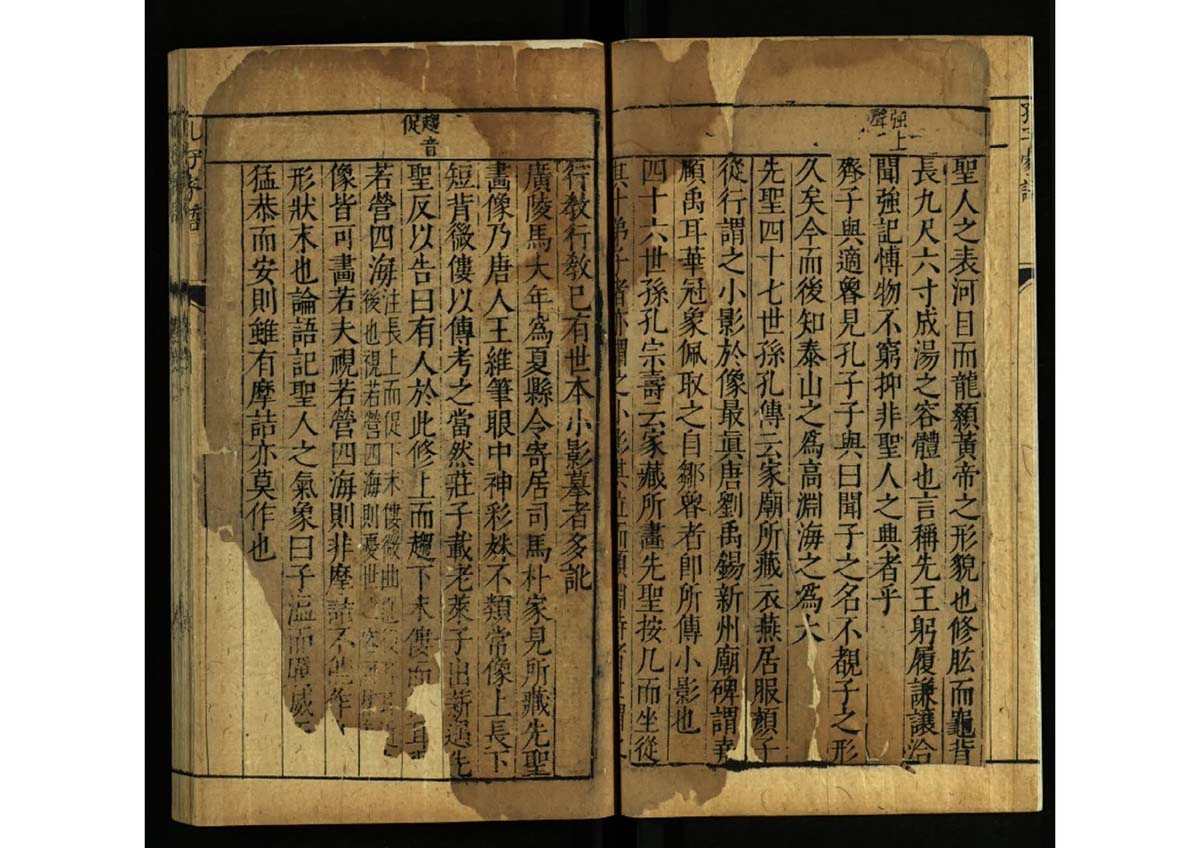 強上
聲
聖人之表河目而龍顙黃帝之形貌也修肱而龜背
長九尺六寸成湯之容體也言稱先王躬履謙讓洽
聞強記博物不窮抑非聖人之興者乎
齊子與適魯見孔子子與曰聞子之名不覩子之形
久矣今而後知泰山之爲高淵海之爲大
先聖四十七世孫孔傳云家廟所藏衣燕居服顏子
從行謂之小影於像最眞唐劉禹錫新州廟碑謂堯
顙禹耳華冠象佩取之自鄒魯者卽所傳小影也
四十六世孫孔宗壽云家藏所畫先聖按几而坐從
其十弟子者亦謂之小影其立而顏淵侍者
行敎行敎已有世本小影摹者多訛
趨音
促
廣陵馬大年爲夏縣令寄居司馬朴家見所藏先聖
畫像乃唐人王維筆眼中神彩姝不類常像上長下
短背微僂以傳考之當然莊子載老萊子出薪遇先
聖反以告曰有人於此修上而趨下末僂而
若營四海注長上而促下末僂微曲
後也視若營四海則憂世之
像皆可畫若夫視若營四海則非摩詰不能作
形狀末也論語記聖人之氣象曰子溫而厲威
猛恭而安則雖有摩詰亦莫作也
孔子家語